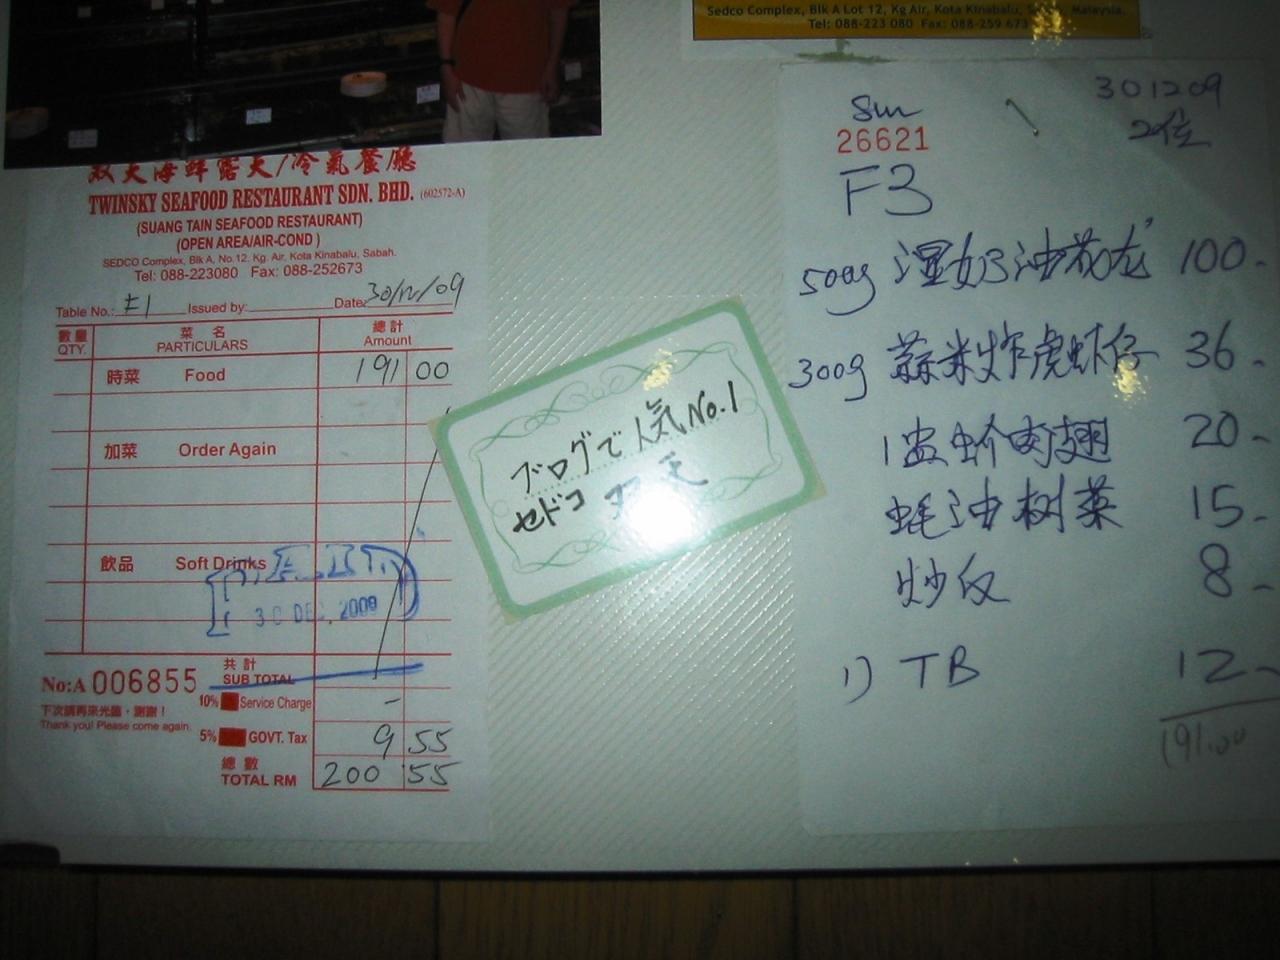 Sedco Complex, Blk A Lot 12, Kg Air, Kota Kinabalu, Malaysia.
Tel: 088-223 080 Fax: 088-259 673
双天海鮮露天/冷氣餐廳
TWINSKY SEAFOOD RESTAURANT SDN. BHD. (602572-A)
(SUANG TAIN SEAFOOD RESTAURANT)
(OPEN AREA/AIR-COND )
SEDCO Complex, Blk A, No.12, Kg. Air, Kota Kinabalu, Sabah.
Tel: 088-223080 Fax: 088-252673
Table No.: Issued by: Date: 30/12/09
數量 菜名 總計
QTY. PARTICULARS Amount
時菜 Food 191 00
加菜 Order Again
飲品 Soft Drinks
30 DEC. 2009
共計
SUB TOTAL
No:A 006855
下次請再來光臨，謝謝！
Thank you! Please come again.
10% Service Charge -
5% GOVT. Tax 9 55
總數
TOTAL RM 200 55
ブログで人気No.1
セドコ 双天
Sun
26621
301209
2位
F3
500g 湿奶油花龙 100-
300g 蒜米炸虎虾仔 36-
肉翅 20-
蚝油树菜 15-
炒饭 8-
1) TB 12-
191.00